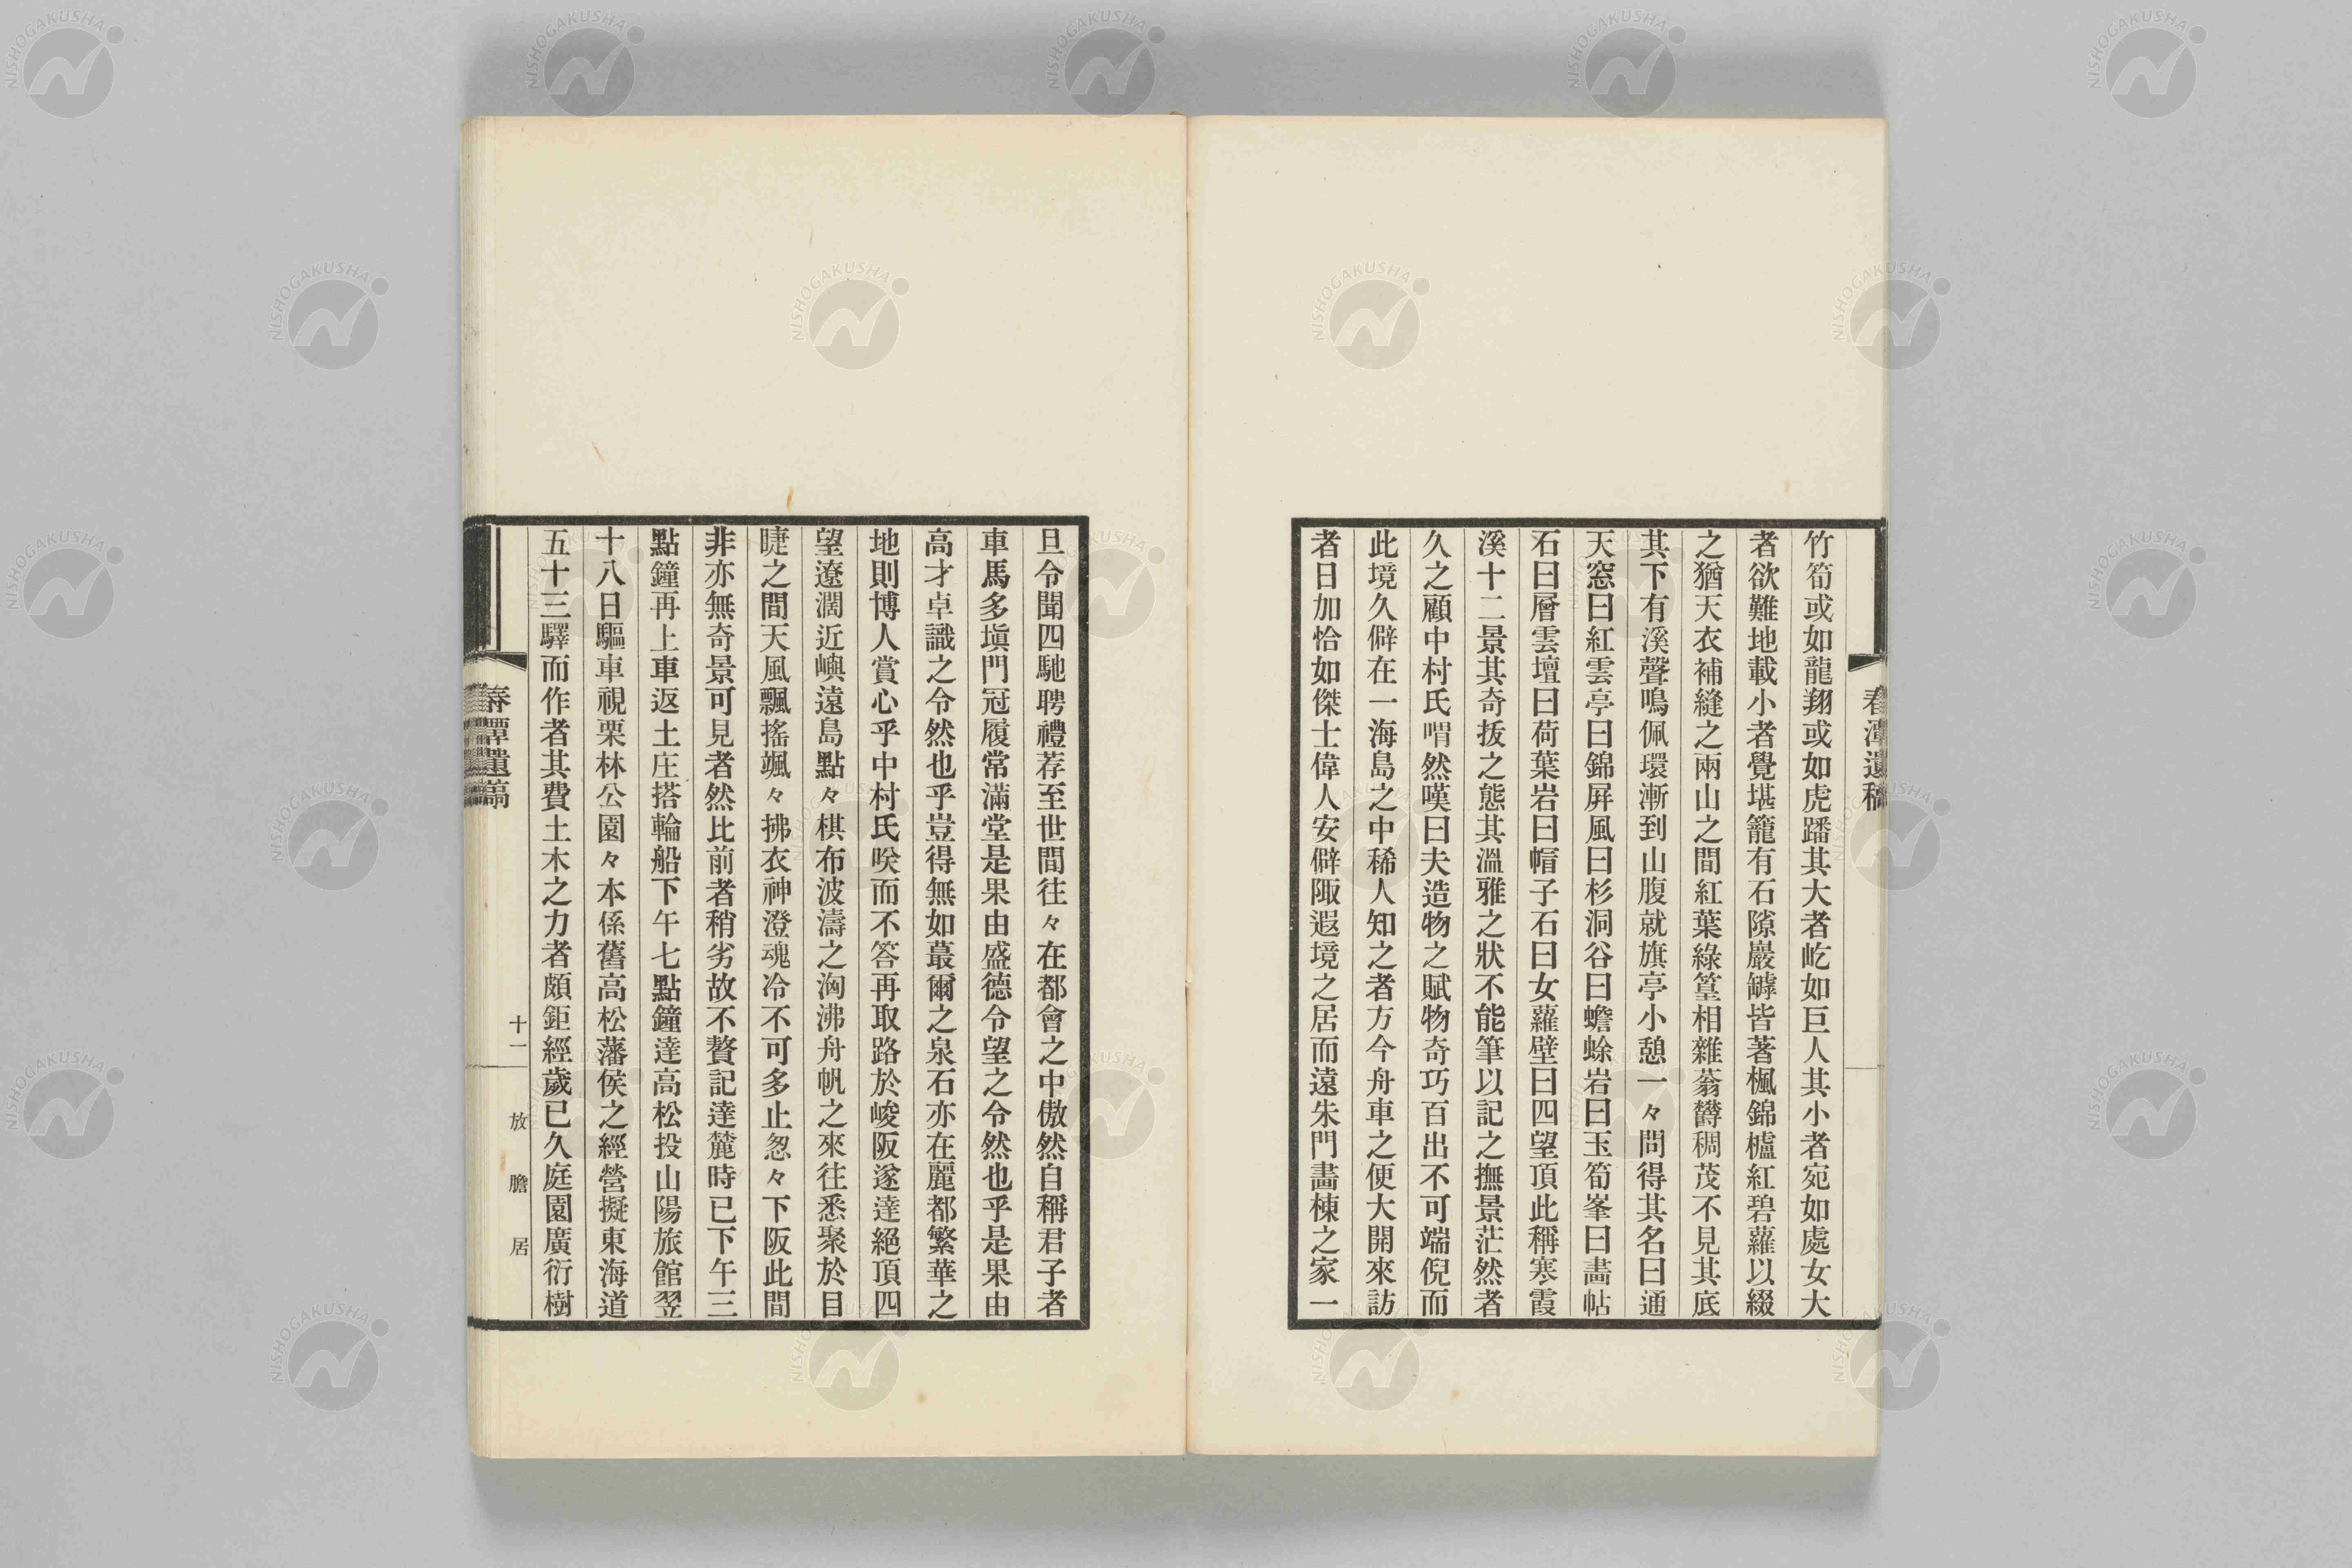 春潭遺稿
竹筍或如龍翔或如虎蹯其大者屹如巨人其小者宛如處女大
者欲難地載小者覺堪籠有石隙巖罅皆著楓錦櫨紅碧蘿以綴
之猶天衣補縫之兩山之間紅葉綠篁相雜蓊欝稠茂不見其底
其下有溪聲鳴佩環漸到山腹就旗亭小憩一々問得其名曰通
天窓曰紅雲亭曰錦屛風曰杉洞谷曰蟾蜍岩曰玉筍峯曰畵帖
石曰層雲壇曰荷葉岩曰帽子石曰女蘿壁曰四望頂此稱寒霞
溪十二景其奇拔之態其溫雅之狀不能筆以記之撫景茫然者
久之顧中村氏喟然嘆曰夫造物之賦物奇巧百出不可端倪而
此境久僻在一海島之中稀人知之者方今舟車之便大開來訪
者日加恰如傑士偉人安僻陬遐境之居而遠朱門畵棟之家一
旦令聞四馳聘禮荐至世間往々在都會之中傲然自稱君子者
車馬多塡門冠履常滿堂是果由盛德令望之令然也乎是果由
高才卓識之令然也乎豈得無如蕞爾之泉石亦在麗都繁華之
地則博人賞心乎中村氏唉而不答再取路於峻阪遂達絕頂四
望遼濶近嶼遠島點々棋布波濤之洶沸舟帆之來往悉聚於目
睫之間天風飄搖颯々拂衣神澄魂冷不可多止怱々下阪此間
非亦無奇景可見者然比前者稍劣故不贅記達麓時已下午三
點鐘再上車返土庄搭輪船下午七點鐘達高松投山陽旅館翌
十八日驅車視栗林公園々本係舊高松藩侯之經營擬東海道
五十三驛而作者其費土木之力者頗鉅經歲已久庭園廣衍樹
春潭遺稿
十一
放膽居
NISHOGAKUSHA